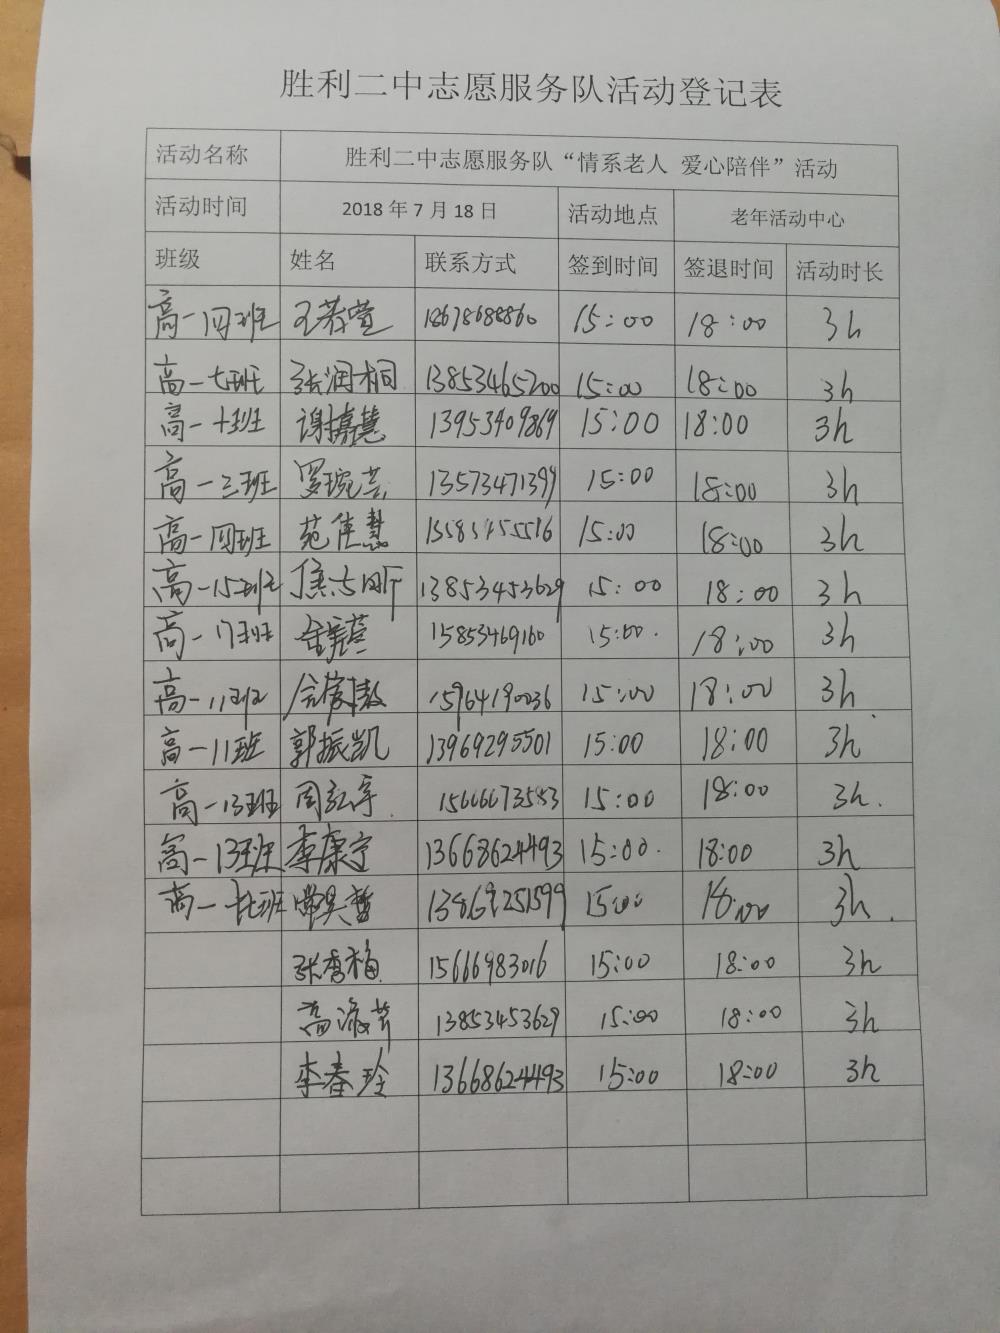 胜利二中志愿服务队活动登记表
活动名称 胜利二中志愿服务队“情系老人 爱心陪伴”活动
活动时间 2018年7月18日 活动地点 老年活动中心
班级 姓名 联系方式 签到时间 签退时间 活动时长
高一四班 王若萱 18678688860 15:00 18:00 3h
高一七班 张润桐 13853465200 15:00 18:00 3h
高一十班 谢嘉慧 13953409869 15:00 18:00 3h
高一三班 罗琬芸 13573471399 15:00 18:00 3h
高一四班 苑佳慧 15:00 18:00 3h
高一15班 13853453629 15:00 18:00 3h
高一17班 15853469160 15:00. 18:00 3h
高一11班 15964190036 15:00 18:00 3h
高一11班 郭振凯 13969295501 15:00 18:00 3h
高一13班 周弘宇. 15666673583 15:00 18:00 3h.
高一13班 李康宁 13668624493 15:00. 18:00 3h
高一十七班 常昊哲 13869251599 15:00 18:00 3h.
张秀梅 15666983016 15:00 18:00 3h
高淑芹 13853453629 15:00 18:00 3h
李春玲 13668624493 15:00 18:00 3h